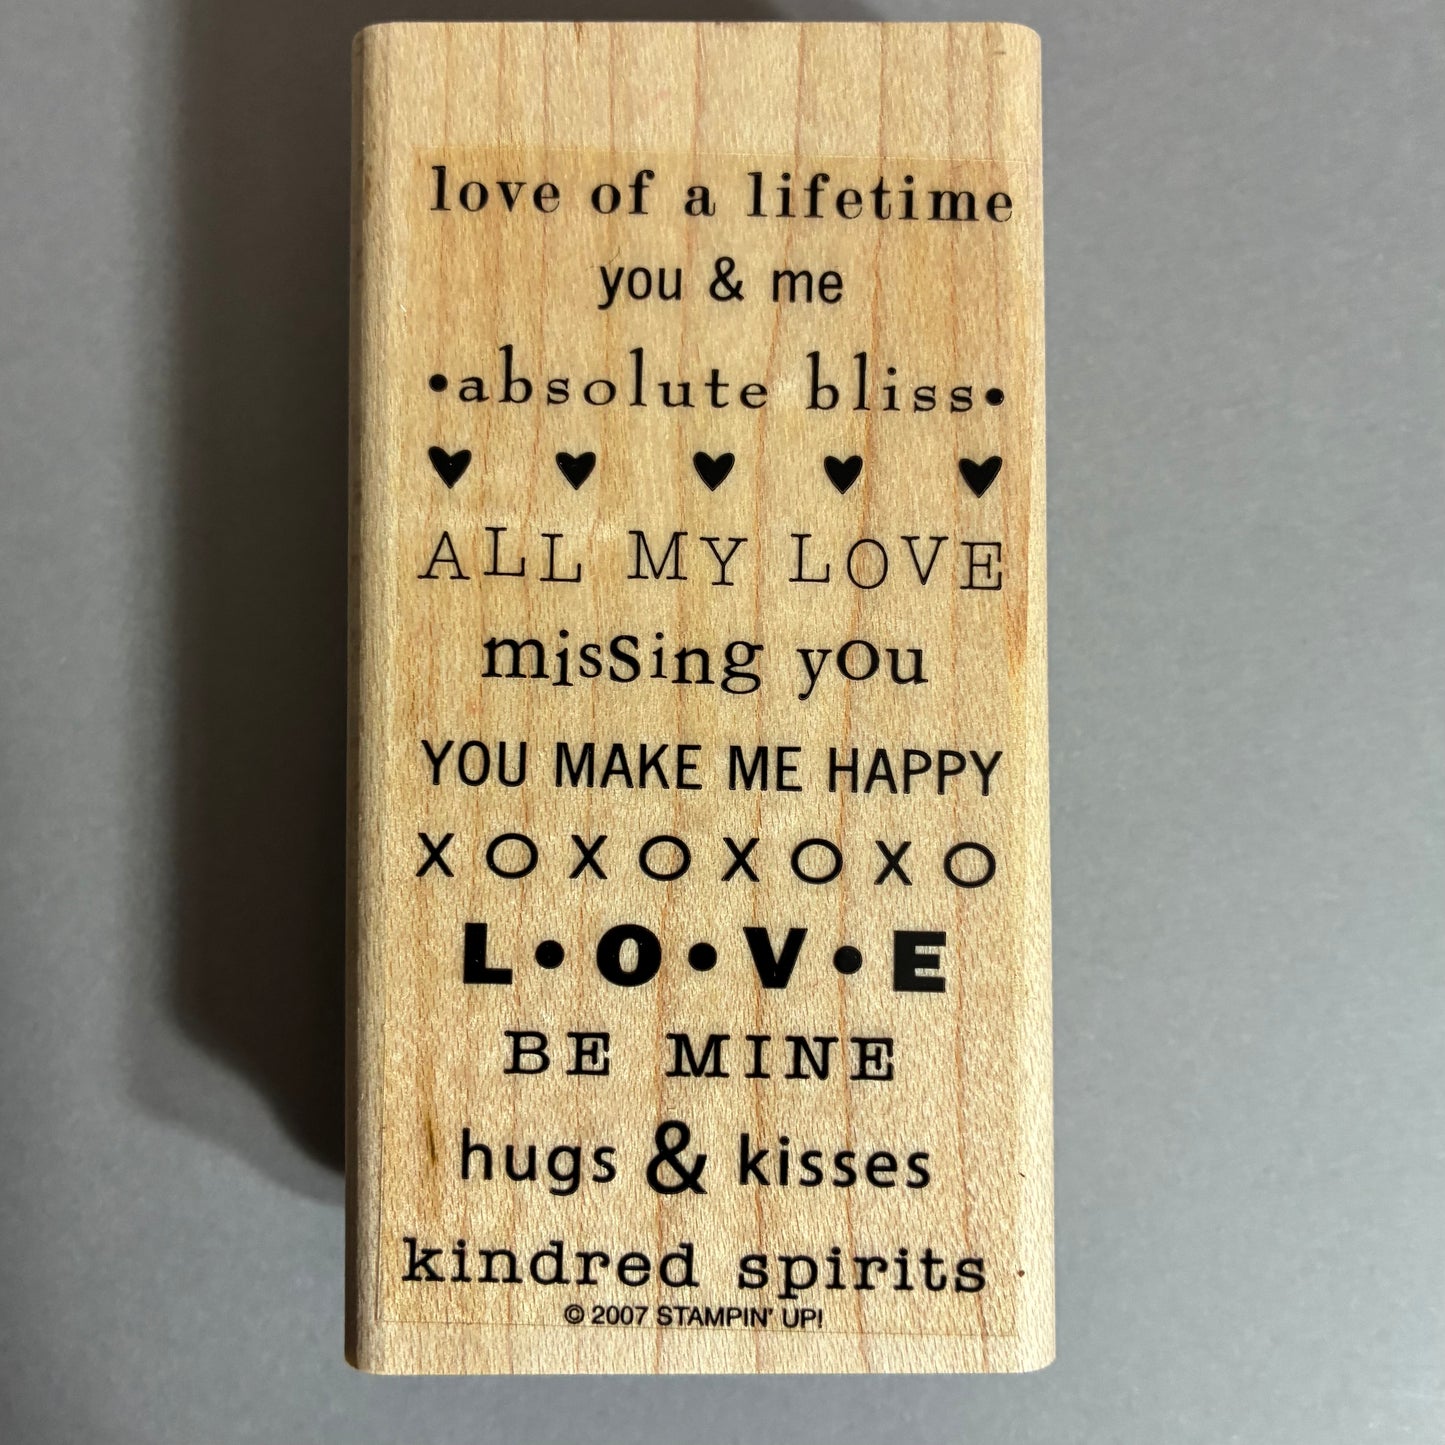 love of a lifetime
you & me
•absolute bliss•
♥ ♥ ♥ ♥ ♥
ALL MY LOVE
missing you
YOU MAKE ME HAPPY
XOXOXOXO
L•O•V•E
BE MINE
hugs & kisses
kindred spirits
© 2007 STAMPIN' UP!